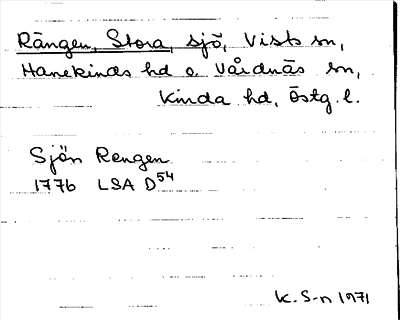 Rängen, Stora, sjö, Vists sn,
Hanekinds hd o Vårdnäs sn,
Kinda hd, Östg. l.
Sjön Rengen
1776 LSA D54
K. S-n 1971